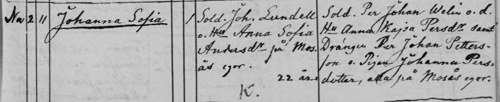 Nov 2 11 Johanna Sofia 1
Sold. Joh. Lundell
o. Hu Anna Sofia
Andersdr på Mos-
ås egor.
22 år
K.
Sold. Per Johan Welin o. d.
Hu Anna Kajsa Persdr samt
Drängen Per Johan Petters-
son o. Pigan Johanna Pers-
dotter, alla på Mosås egor.